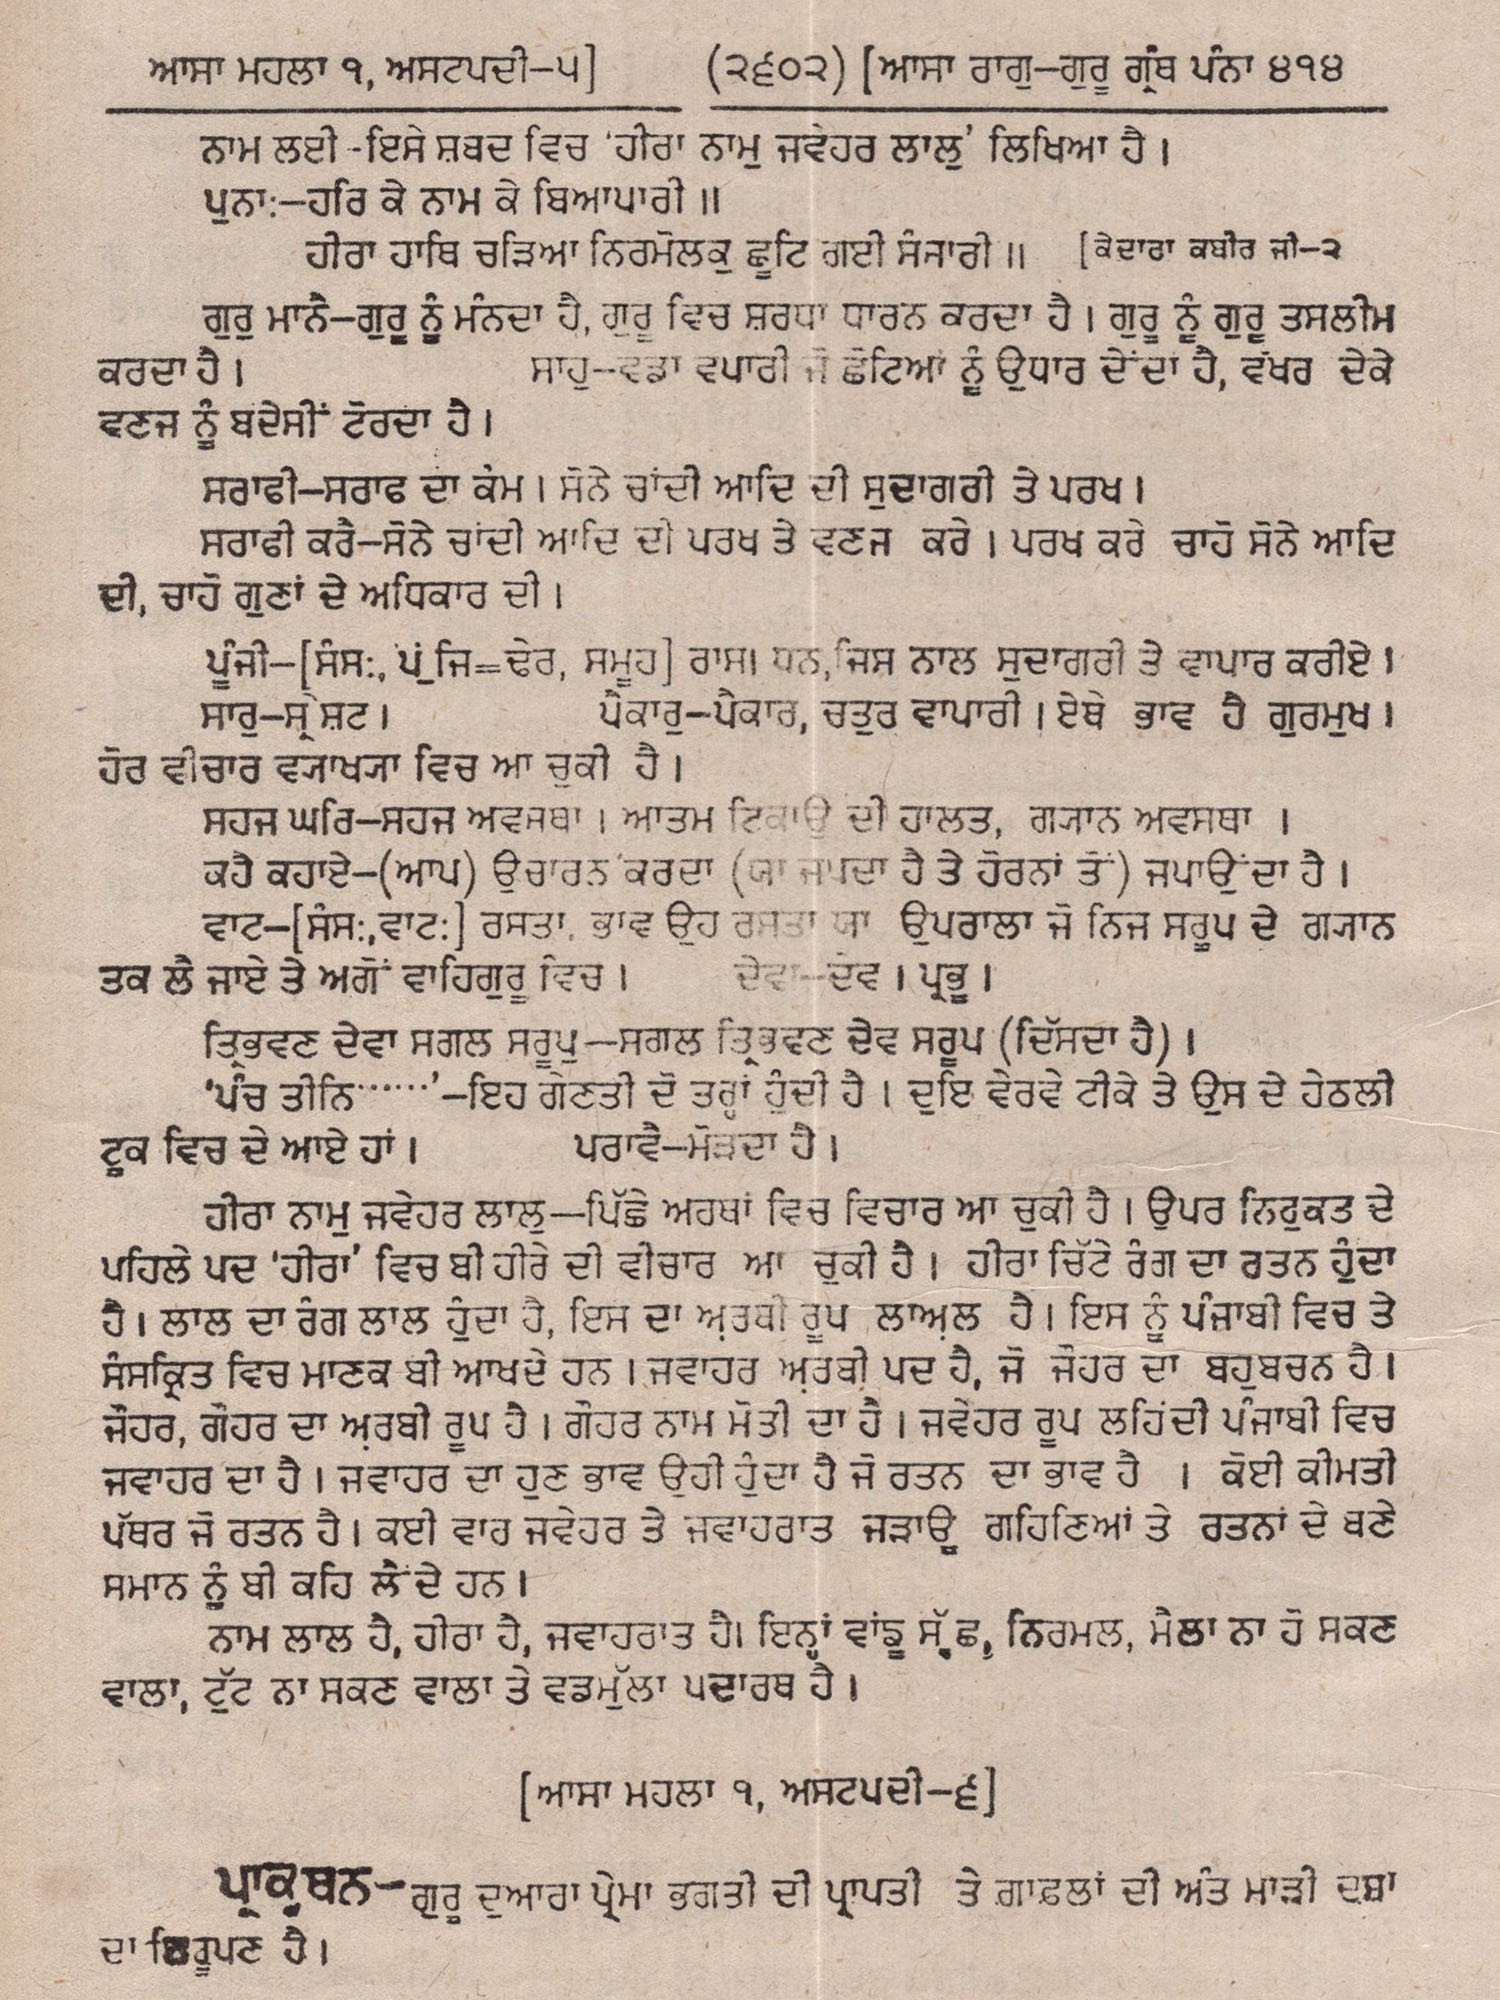 ਆਸਾ ਮਹਲਾ ੧, ਅਸਟਪਦੀ–੫] (੨੬੦੨) [ਆਸਾ ਰਾਗੁ–ਗੁਰੂ ਗ੍ਰੰਥ ਪੰਨਾ ੪੧੪
ਨਾਮ ਲਈ -ਇਸੇ ਸ਼ਬਦ ਵਿਚ ‘ਹੀਰਾ ਨਾਮੁ ਜਵੇਹਰ ਲਾਲੁ’ ਲਿਖਿਆ ਹੈ।
ਪੁਨਾ:–ਹਰਿ ਕੇ ਨਾਮ ਕੇ ਬਿਆਪਾਰੀ॥
ਹੀਰਾ ਹਾਥਿ ਚੜਿਆ ਨਿਰਮੋਲਕੁ ਛੂਟਿ ਗਈ ਸੰਸਾਰੀ॥ [ਕੇਦਾਰਾ ਕਬੀਰ ਜੀ–੨
ਗੁਰੁ ਮਾਨੈ–ਗੁਰੂ ਨੂੰ ਮੰਨਦਾ ਹੈ, ਗੁਰੂ ਵਿਚ ਸ਼ਰਧਾ ਧਾਰਨ ਕਰਦਾ ਹੈ। ਗੁਰੂ ਨੂੰ ਗੁਰੂ ਤਸਲੀਮ
ਕਰਦਾ ਹੈ। ਸਾਹੁ–ਵਡਾ ਵਪਾਰੀ ਜੋ ਛੋਟਿਆਂ ਨੂੰ ਉਧਾਰ ਦੇਂਦਾ ਹੈ, ਵੱਖਰ ਦੇਕੇ
ਵਣਜ ਨੂੰ ਬਦੇਸੀਂ ਟੋਰਦਾ ਹੈ।
ਸਰਾਫੀ–ਸਰਾਫ ਦਾ ਕੰਮ। ਸੋਨੇ ਚਾਂਦੀ ਆਦਿ ਦੀ ਸੁਦਾਗਰੀ ਤੇ ਪਰਖ।
ਸਰਾਫੀ ਕਰੈ–ਸੋਨੇ ਚਾਂਦੀ ਆਦਿ ਦੀ ਪਰਖ ਤੇ ਵਣਜ ਕਰੇ। ਪਰਖ ਕਰੇ ਚਾਹੋ ਸੋਨੇ ਆਦਿ
ਦੀ, ਚਾਹੋ ਗੁਣਾਂ ਦੇ ਅਧਿਕਾਰ ਦੀ।
ਪੂੰਜੀ–[ਸੰਸ:, ਪੁੰਜਿ=ਢੇਰ, ਸਮੂਹ] ਰਾਸ। ਧਨ,ਜਿਸ ਨਾਲ ਸੁਦਾਗਰੀ ਤੇ ਵਾਪਾਰ ਕਰੀਏ।
ਸਾਰੁ–ਸ੍ਰੇਸ਼ਟ। ਪੈਕਾਰੁ–ਪੈਕਾਰ, ਚਤੁਰ ਵਾਪਾਰੀ। ਏਥੇ ਭਾਵ ਹੈ ਗੁਰਮੁਖ।
ਹੋਰ ਵੀਚਾਰ ਵ੍ਯਾਖ੍ਯਾ ਵਿਚ ਆ ਚੁਕੀ ਹੈ।
ਸਹਜ ਘਰਿ–ਸਹਜ ਅਵਸਥਾ। ਆਤਮ ਟਿਕਾਉ ਦੀ ਹਾਲਤ, ਗ੍ਯਾਨ ਅਵਸਥਾ ।
ਕਹੈ ਕਹਾਏ–(ਆਪ) ਉਚਾਰਨ ਕਰਦਾ (ਯਾ ਜਪਦਾ ਹੈ ਤੇ ਹੋਰਨਾਂ ਤੋਂ) ਜਪਾਉਂਦਾ ਹੈ।
ਵਾਟ–[ਸੰਸ:,ਵਾਟ:] ਰਸਤਾ, ਭਾਵ ਉਹ ਰਸਤਾ ਯਾ ਉਪਰਾਲਾ ਜੋ ਨਿਜ ਸਰੂਪ ਦੇ ਗ੍ਯਾਨ
ਤਕ ਲੈ ਜਾਏ ਤੇ ਅਗੋਂ ਵਾਹਿਗੁਰੂ ਵਿਚ। ਦੇਵਾ–ਦੇਵ। ਪ੍ਰਭੂ।
ਤ੍ਰਿਭਵਣ ਦੇਵਾ ਸਗਲ ਸਰੂਪੁ–ਸਗਲ ਤ੍ਰਿਭਵਣ ਦੇਵ ਸਰੂਪ (ਦਿੱਸਦਾ ਹੈ)।
‘ਪੰਚ ਤੀਨਿ······’–ਇਹ ਗੇਣਤੀ ਦੋ ਤਰ੍ਹਾਂ ਹੁੰਦੀ ਹੈ। ਦੁਇ ਵੇਰਵੇ ਟੀਕੇ ਤੇ ਉਸ ਦੇ ਹੇਠਲੀ
ਟੂਕ ਵਿਚ ਦੇ ਆਏ ਹਾਂ। ਪਰਾਵੈ–ਮੋੜਦਾ ਹੈ।
ਹੀਰਾ ਨਾਮੁ ਜਵੇਹਰ ਲਾਲੁ–ਪਿੱਛੇ ਅਰਥਾਂ ਵਿਚ ਵਿਚਾਰ ਆ ਚੁਕੀ ਹੈ। ਉਪਰ ਨਿਰੁਕਤ ਦੇ
ਪਹਿਲੇ ਪਦ ‘ਹੀਰਾ’ ਵਿਚ ਬੀ ਹੀਰੇ ਦੀ ਵੀਚਾਰ ਆ ਚੁਕੀ ਹੈ। ਹੀਰਾ ਚਿੱਟੇ ਰੰਗ ਦਾ ਰਤਨ ਹੁੰਦਾ
ਹੈ। ਲਾਲ ਦਾ ਰੰਗ ਲਾਲ ਹੁੰਦਾ ਹੈ, ਇਸ ਦਾ ਅ਼ਰਬੀ ਰੂਪ ਲਾਅ਼ਲ ਹੈ। ਇਸ ਨੂੰ ਪੰਜਾਬੀ ਵਿਚ ਤੇ
ਸੰਸਕ੍ਰਿਤ ਵਿਚ ਮਾਣਕ ਬੀ ਆਖਦੇ ਹਨ। ਜਵਾਹਰ ਅ਼ਰਬੀ ਪਦ ਹੈ, ਜੋ ਜੌਹਰ ਦਾ ਬਹੁਬਚਨ ਹੈ।
ਜੌਹਰ, ਗੌਹਰ ਦਾ ਅ਼ਰਬੀ ਰੂਪ ਹੈ। ਗੌਹਰ ਨਾਮ ਮੋਤੀ ਦਾ ਹੈ। ਜਵੇਹਰ ਰੂਪ ਲਹਿੰਦੀ ਪੰਜਾਬੀ ਵਿਚ
ਜਵਾਹਰ ਦਾ ਹੈ। ਜਵਾਹਰ ਦਾ ਹੁਣ ਭਾਵ ਉਹੀ ਹੁੰਦਾ ਹੈ ਜੋ ਰਤਨ ਦਾ ਭਾਵ ਹੈ । ਕੋਈ ਕੀਮਤੀ
ਪੱਥਰ ਜੋ ਰਤਨ ਹੈ। ਕਈ ਵਾਰ ਜਵੇਹਰ ਤੇ ਜਵਾਹਰਾਤ ਜੜਾਊ ਗਹਿਣਿਆਂ ਤੇ ਰਤਨਾਂ ਦੇ ਬਣੇ
ਸਮਾਨ ਨੂੰ ਬੀ ਕਹਿ ਲੈਂਦੇ ਹਨ।
ਨਾਮ ਲਾਲ ਹੈ, ਹੀਰਾ ਹੈ, ਜਵਾਹਰਾਤ ਹੈ। ਇਨ੍ਹਾਂ ਵਾਂਙੂ ਸ੍ਵੱਛ, ਨਿਰਮਲ, ਮੈਲਾ ਨਾ ਹੋ ਸਕਣ
ਵਾਲਾ, ਟੁੱਟ ਨਾ ਸਕਣ ਵਾਲਾ ਤੇ ਵਡਮੁੱਲਾ ਪਦਾਰਥ ਹੈ।
[ਆਸਾ ਮਹਲਾ ੧, ਅਸਟਪਦੀ–੬]
ਪ੍ਰਾਕ੍ਕਥਨ–ਗੁਰੂ ਦੁਆਰਾ ਪ੍ਰੇਮਾ ਭਗਤੀ ਦੀ ਪ੍ਰਾਪਤੀ ਤੇ ਗ਼ਾਫ਼ਲਾਂ ਦੀ ਅੰਤ ਮਾੜੀ ਦਸ਼ਾ
ਦਾ ਨਿਰੂਪਣ ਹੈ।